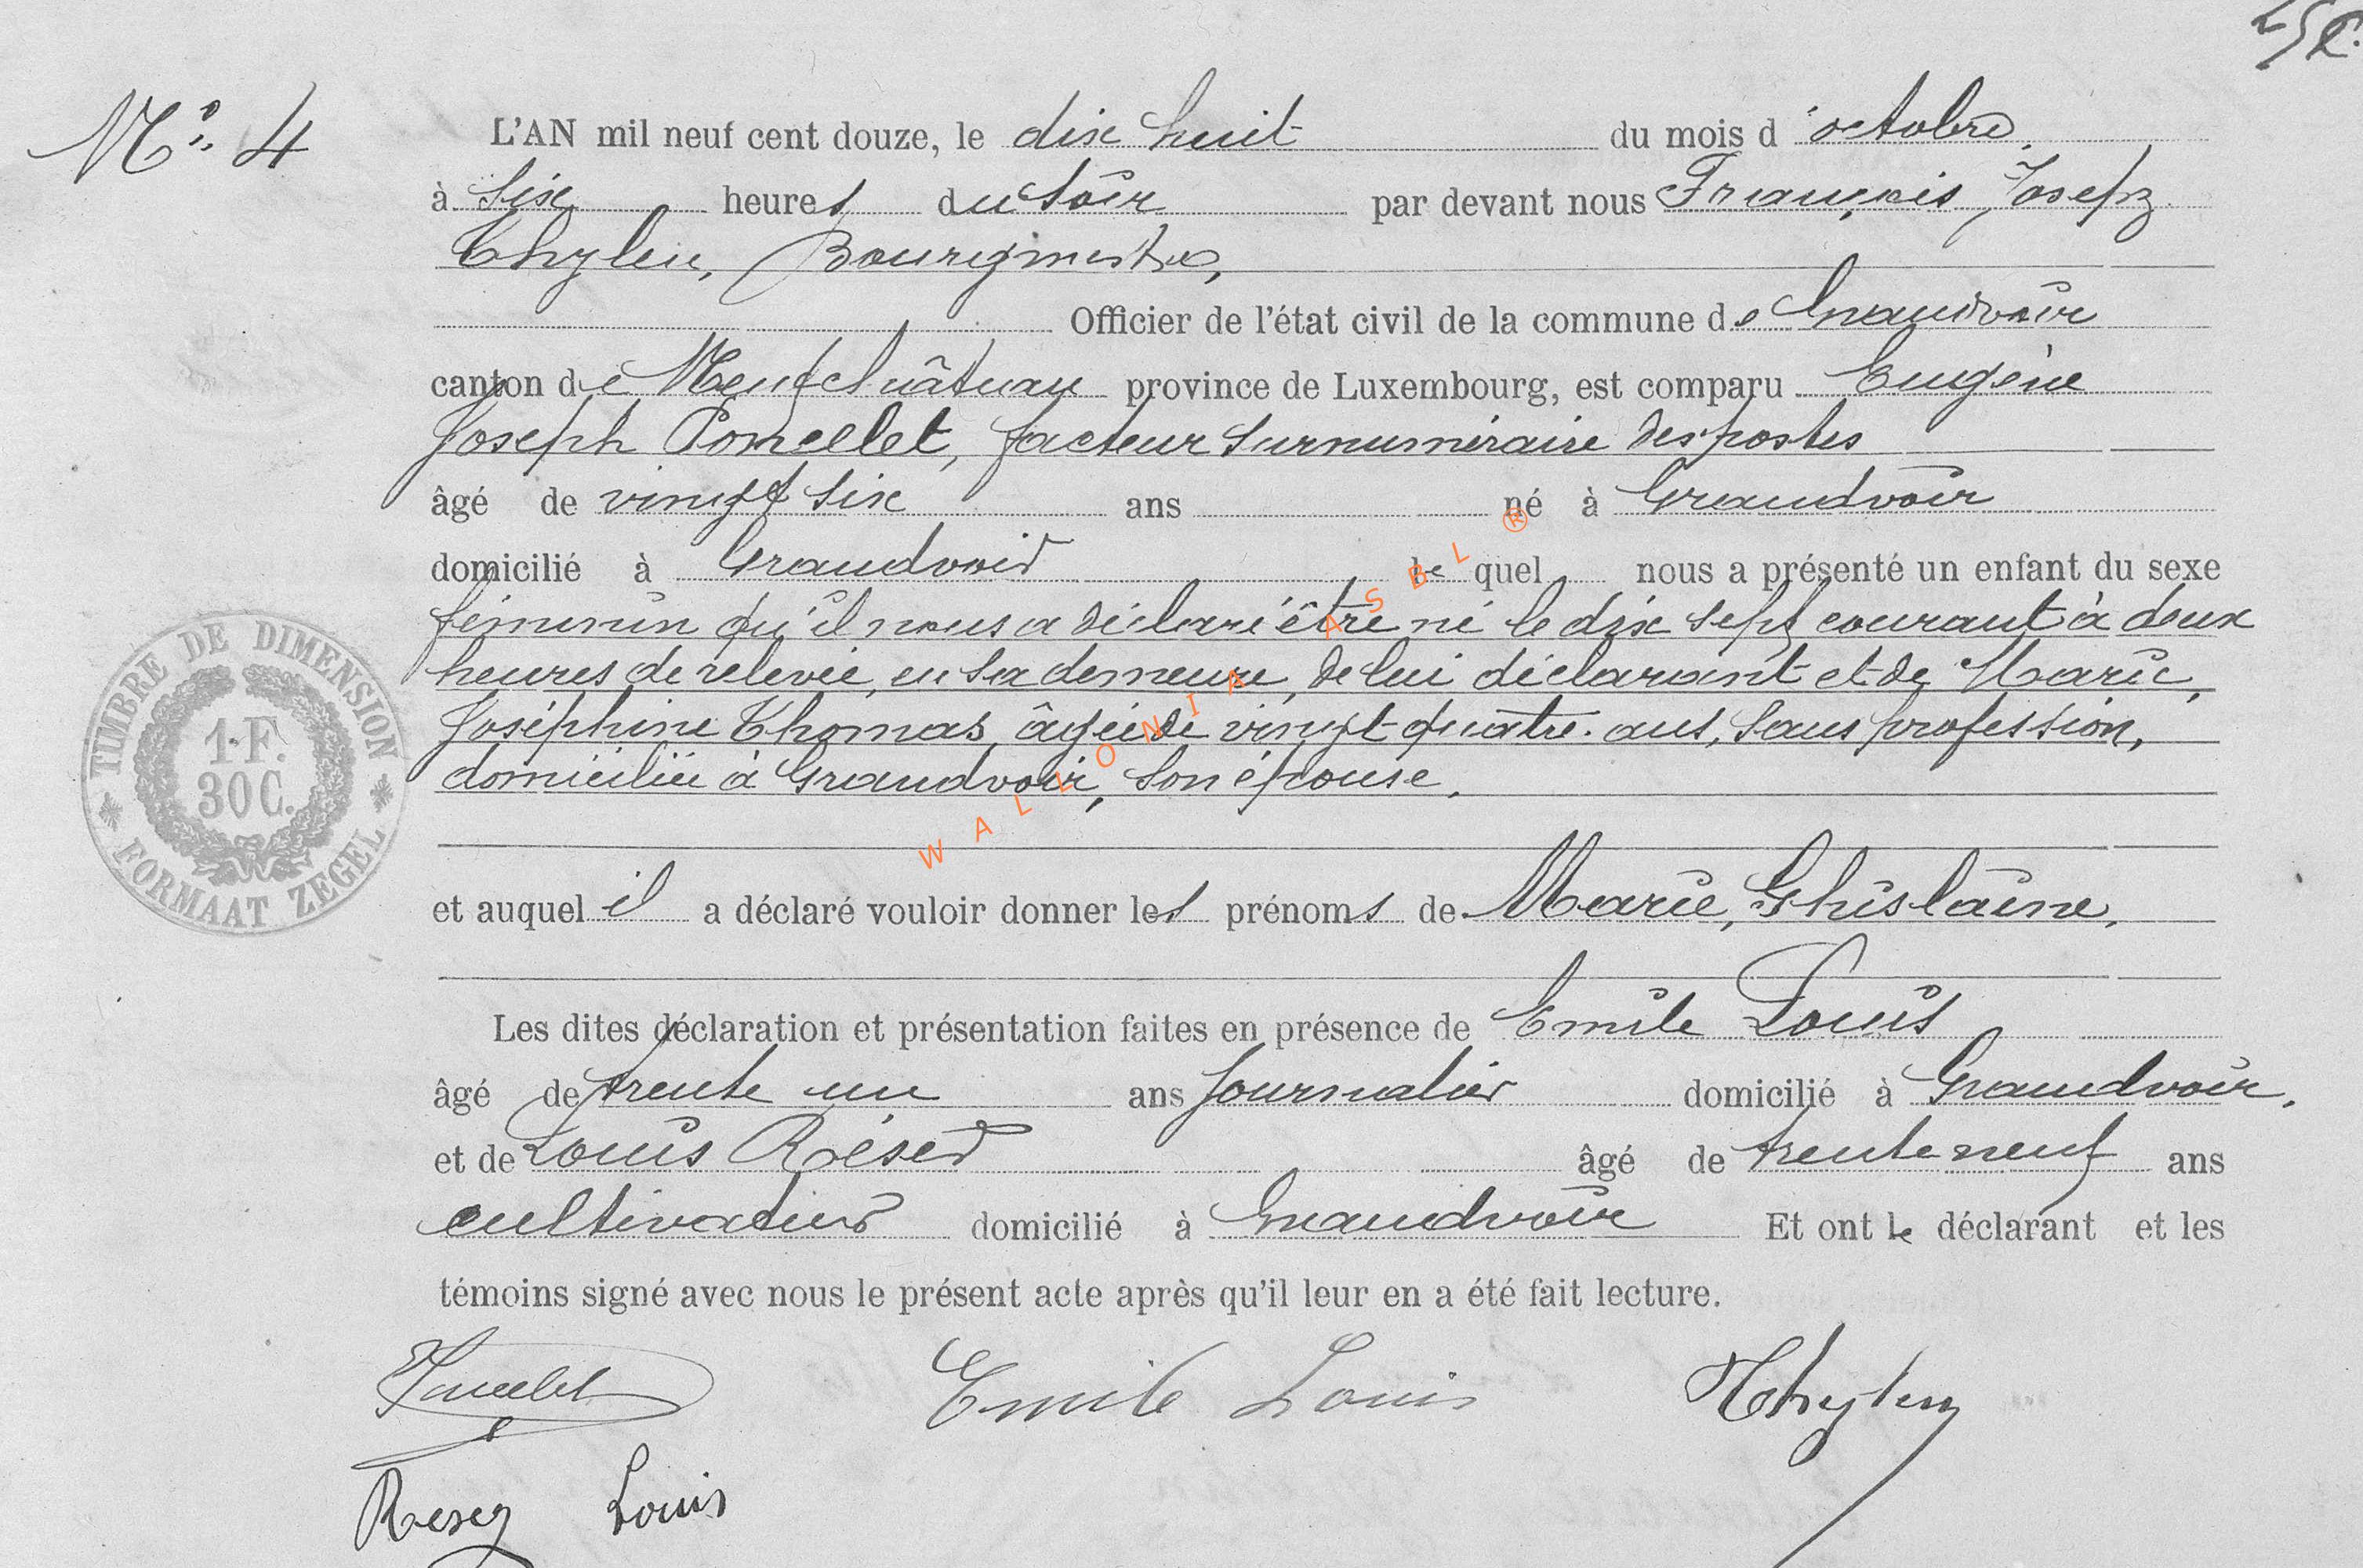 25e.
N° 4
L'AN mil neuf cent douze, le dix huit du mois d'octobre,
à six heures du soir par devant nous François, Joseph
Thylen, Bourgmestre,
Officier de l'état civil de la commune de Grandvoir
canton de Neufchâteau province de Luxembourg, est comparu Eugène
Joseph Poncelet, facteur surnuméraire des postes
âgé de vingt six ans né à Grandvoir
domicilié à Grandvoir lequel nous a présenté un enfant du sexe
féminin qu'il nous a déclaré être né le dix sept courant à deux
heures de relevée, en sa demeure, de lui déclarant et de Marie,
Joséphine Thomas, âgée de vingt-quatre ans, sans profession,
domiciliée à Grandvoir, son épouse,
et auquel il a déclaré vouloir donner les prénoms de Marie, Ghislaine,
Les dites déclaration et présentation faites en présence de Emile Louis
âgé de trente un ans journalier domicilié à Grandvoir,
et de Louis Réser âgé de trente neuf ans
cultivateur domicilié à Grandvoir Et ont le déclarant et les
témoins signé avec nous le présent acte après qu'il leur en a été fait lecture.
Poncelet Emile Louis Thylen
Reser Louis
TIMBRE DE DIMENSION
1 F.
30 C.
FORMAAT ZEGEL
WALLONIA ASBL ®